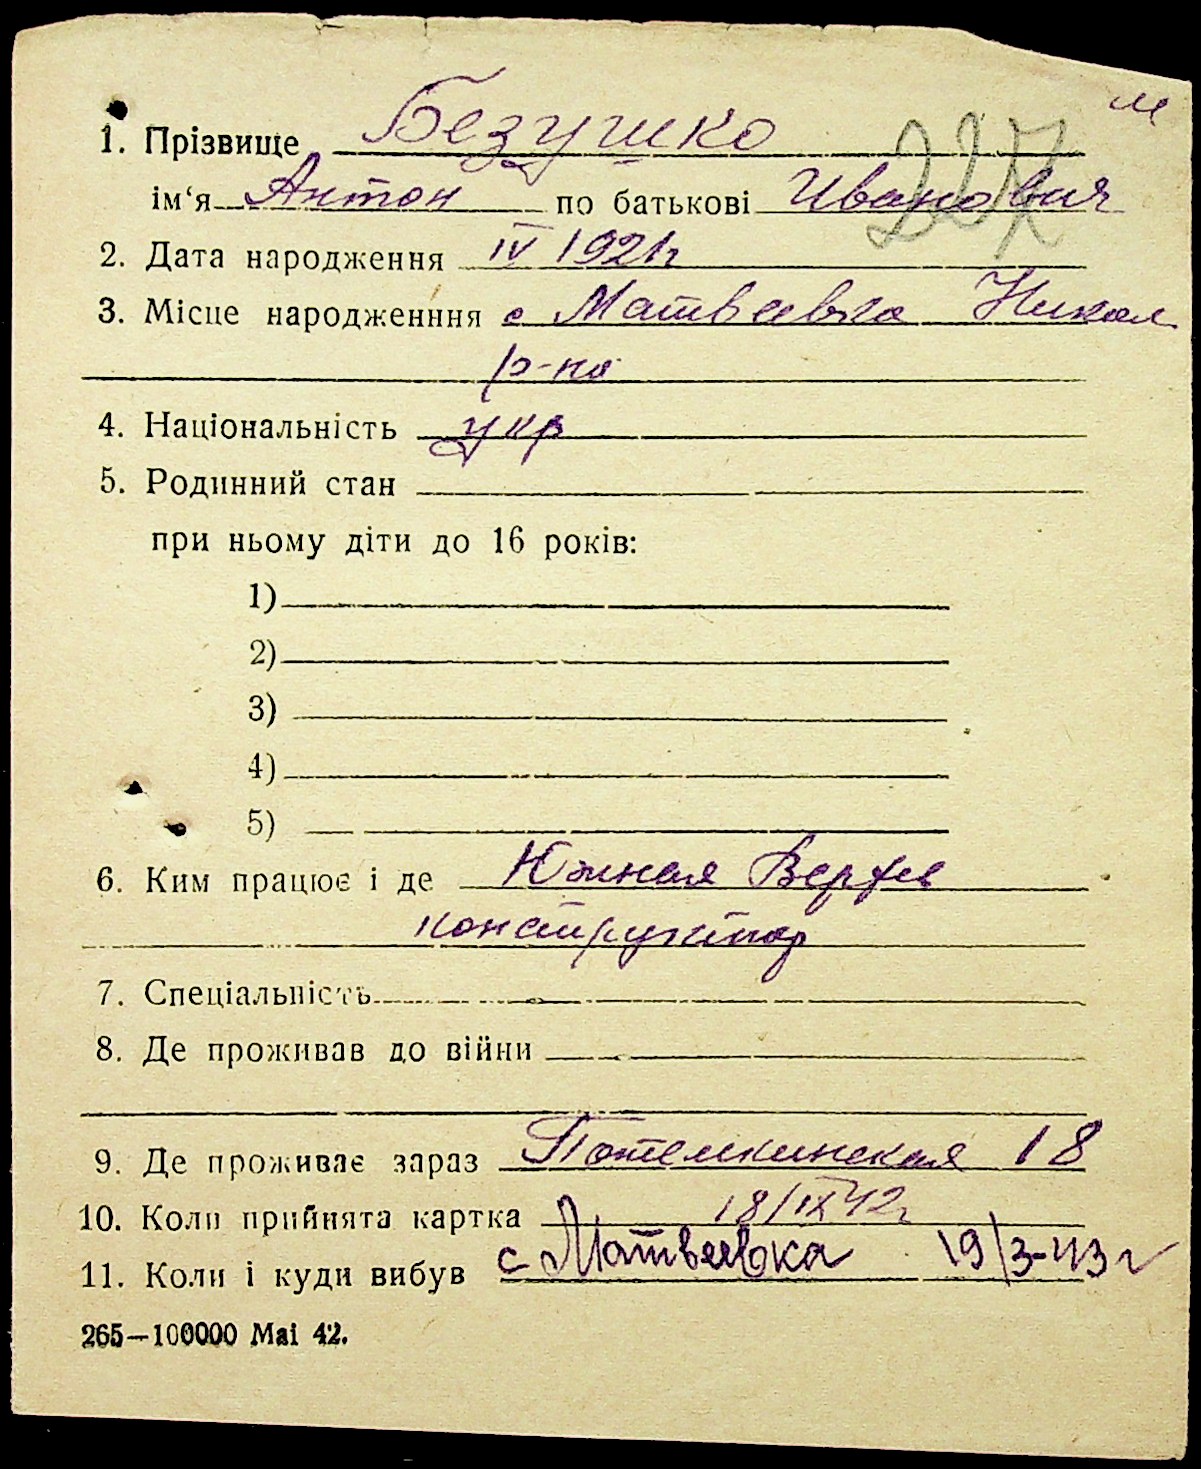 м
1. Прізвище Безушко
227
ім‘я Антон по батькові Иванович
2. Дата народження IV 1921г
3. Місце народженння с Матвеевка Никол
р-на
4. Національність укр
5. Родинний стан
при ньому діти до 16 років:
1)
2)
3)
4)
5)
6. Ким працює і де Южная Верфь
конструктор
7. Спеціальність
8. Де проживав до війни
9. Де проживає зараз Потемкинская 18
10. Коли прийнята картка 18/IX 42г
11. Коли і куди вибув с Матвеевка 19/3-43 г
265—100000 Mai 42.